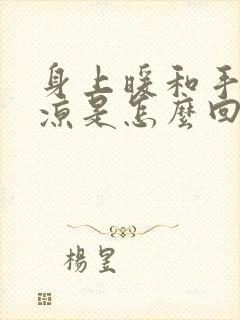 身上暖和手
凉是怎麼回
楊昱